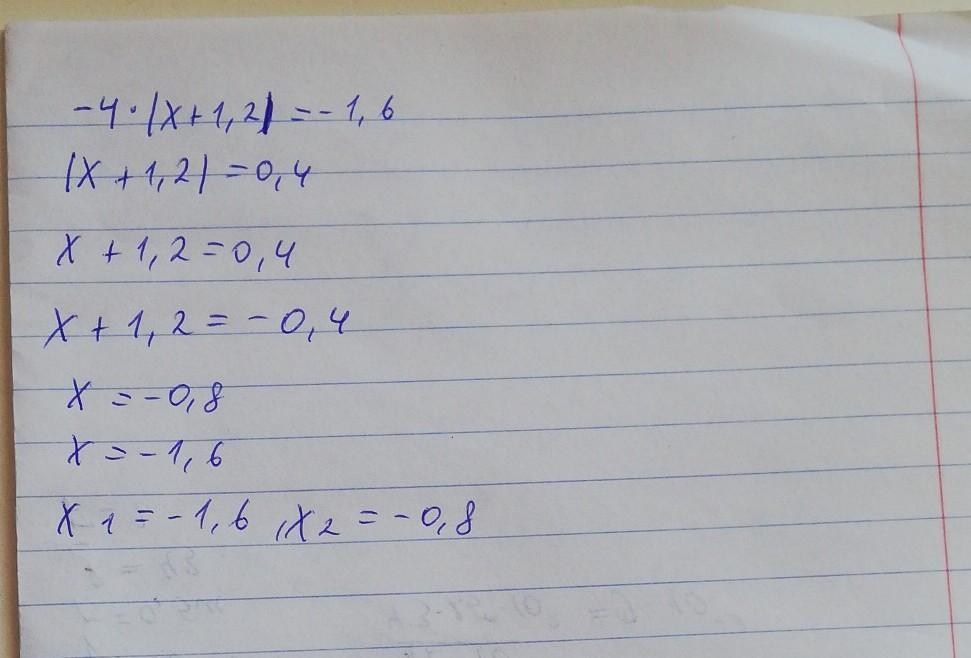 -4·|x+1,2|=-1,6
|x+1,2|=0,4
x+1,2=0,4
x+1,2=-0,4
x=-0,8
x=-1,6
x1=-1,6,x2=-0,8